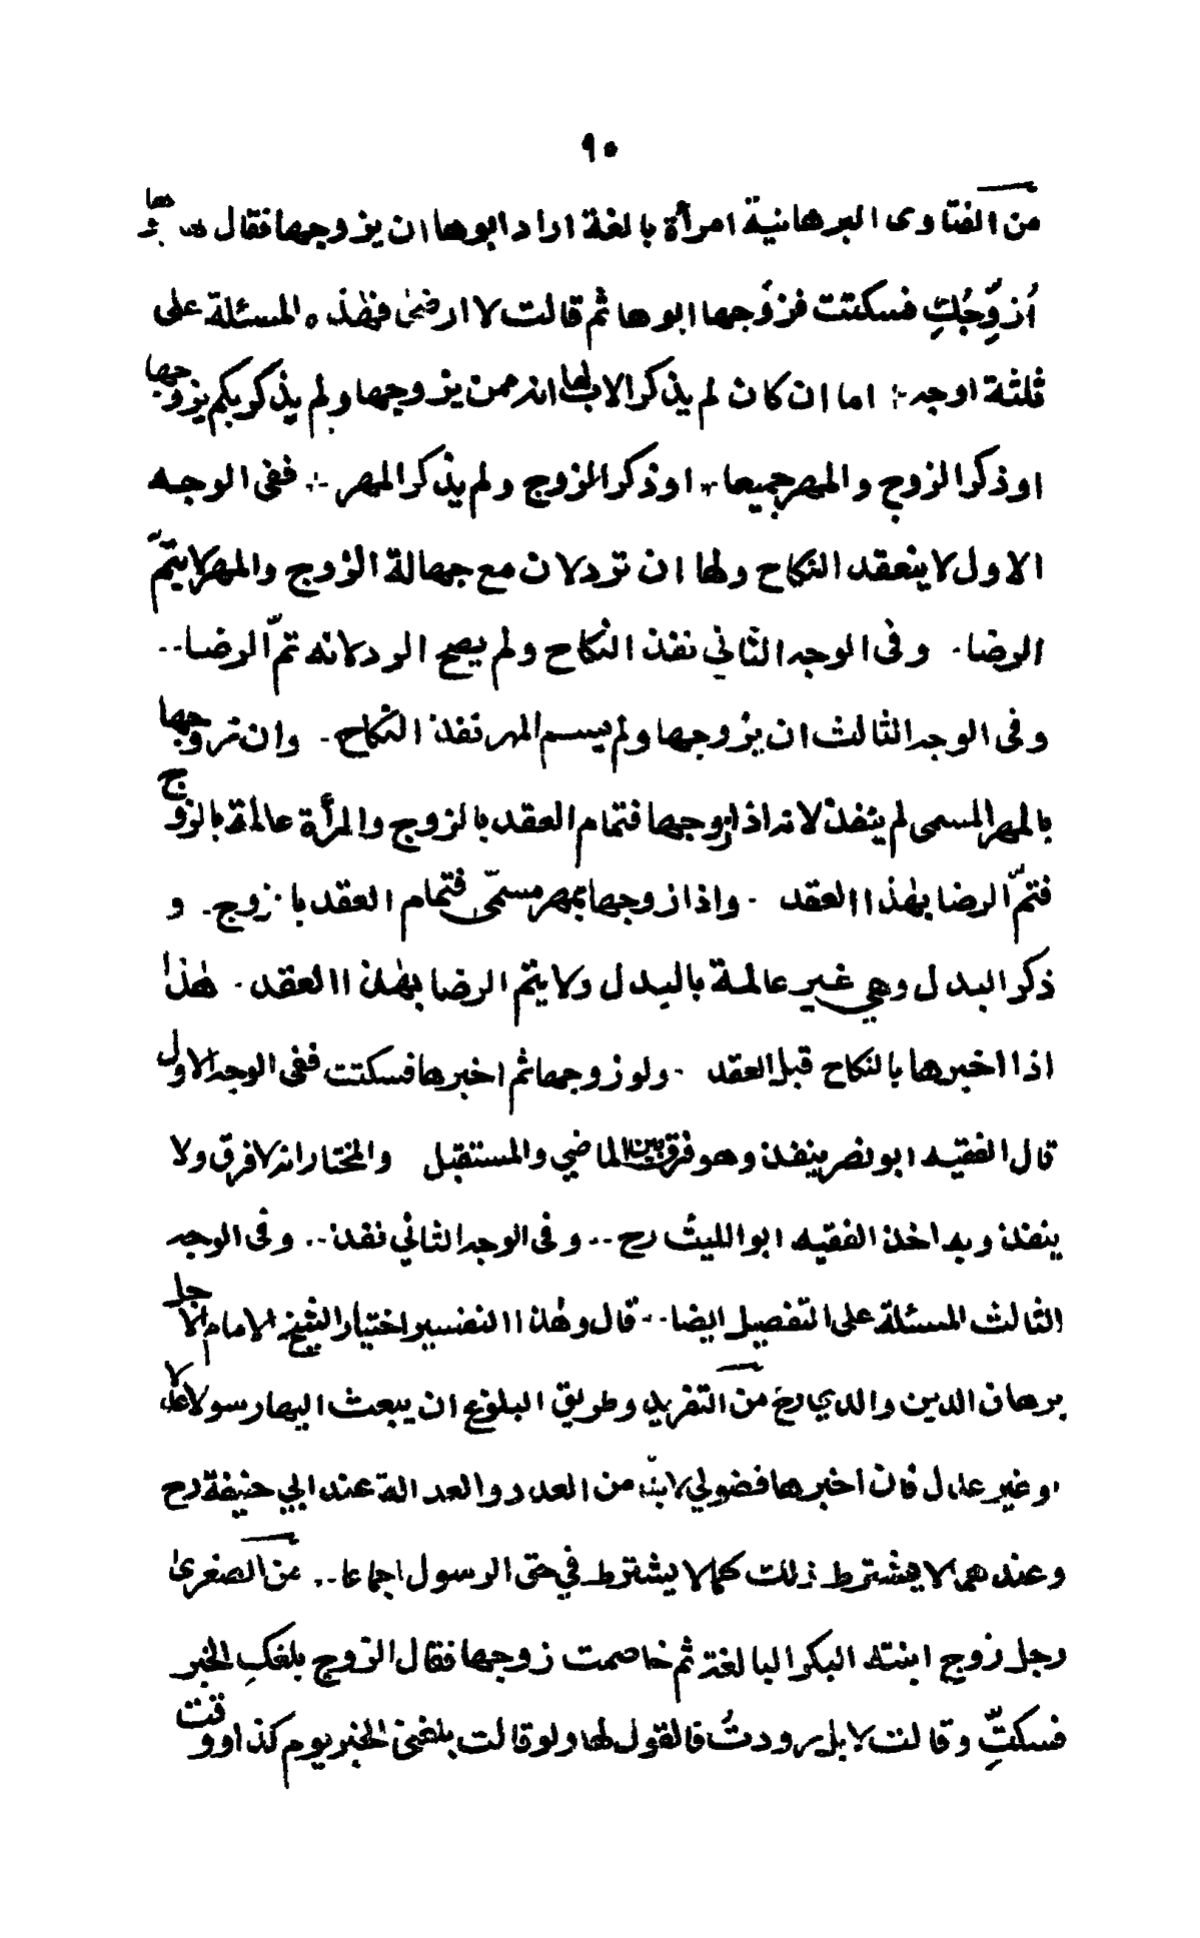 ٩٠
من الفتاوى البرهانية امرأة بالغة اراد ابوها ان يزوجها فقال لها
أُزوِّجُكِ فسكتت فزوّجها ابوها ثم قالت لا ارضىٰ فهٰذه المسئلة على
ثلثة اوجه ؛ اما ان كان لم يذكر الاب لها انه ممن يزوجها ولم يذكر بكم يزوجها
او ذكر الزوج والمهر جميعا ؛ او ذكر الزوج ولم يذكر المهر ؛ ففى الوجه
الاول لا ينعقد النكاح ولها ان ترد لان مع جهالة الزوج والمهر لا يتمّ
الرضا . وفى الوجه الثاني نفذ النكاح ولم يصح الرد لانه تمّ الرضا ..
وفى الوجه الثالث ان يزوجها ولم يسم المهر نفذ النكاح . وان تزوجها
بالمهر المسمى لم ينفذ لانه اذا زوجها فتمام العقد بالزوج والمرأة عالمة بالزوج
فتمّ الرضا بهٰذا العقد . واذا زوجها بمهر مسمّى فتمام العقد بالزوج . و
ذكر البدل وهي غير عالمة بالبدل ولا يتم الرضا بهٰذا العقد . هٰذا
اذا اخبرها بالنكاح قبل العقد . ولو زوجها ثم اخبرها فسكتت ففى الوجه الاول
قال الفقيه ابو نصر ينفذ وهو فرق بين الماضي والمستقبل والمختار انه لا فرق ولا
ينفذ وبه اخذ الفقيه ابو الليث رح .. وفى الوجه الثاني نفذ .. وفى الوجه
الثالث المسئلة على التفصيل ايضا .. قال وهٰذا التفسير اختيار الشيخ الامام الاجل
برهان الدين والدي رح من التفريد وطريق البلوغ ان يبعث اليها رسولا عدلا
او غير عدل فان اخبرها فضولي لابدّ من العدد والعدالة عند ابي حنيفة رح
وعندهما لا يشترط ذلك كما لا يشترط في حق الرسول اجماعا .. من الصغرىٰ
رجل زوج ابنته البكر البالغة ثم خاصمت زوجها فقال الزوج بلغكِ الخبر
فسكتِّ وقالت لا بل رددتُ فالقول لها ولو قالت بلغنى الخبر يوم كذا ووقت